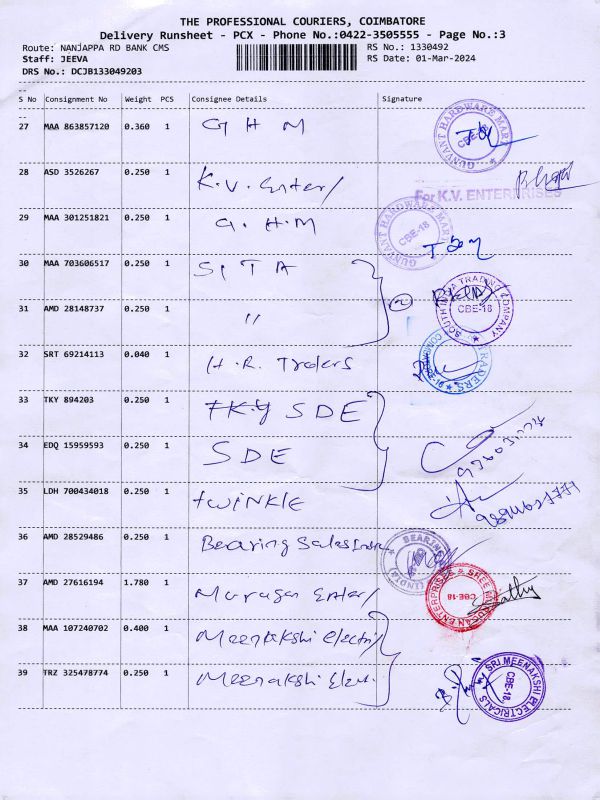 THE PROFESSIONAL COURIERS, COIMBATORE
Delivery Runsheet - PCX - Phone No.:0422-3505555 - Page No.:3
Route: NANJAPPA RD BANK CMS RS No.: 1330492
Staff: JEEVA RS Date: 01-Mar-2024
DRS No.: DCJB133049203
S No Consignment No Weight PCS Consignee Details Signature
27 MAA 863857120 0.360 1 G H M GUNVANT HARDWARE MART CBE-18
28 ASD 3526267 0.250 1 K.V. Enter/
For K.V. ENTERPRISES
29 MAA 301251821 0.250 1 G. H.M GUNVANT HARDWARE MART CBE-18
30 MAA 703606517 0.250 1 S I T A
31 AMD 28148737 0.250 1 " 2 SOUTH INDIA TRADING COMPANY CBE-18
32 SRT 69214113 0.040 1 H.R. Traders TRADERS
33 TKY 894203 0.250 1 SDE
34 EDQ 15959593 0.250 1 SDE
35 LDH 700434018 0.250 1 twinkle
36 AMD 28529486 0.250 1 Bearing Sales BEARING
37 AMD 27616194 1.780 1 Murugan Enter/ SREE MURUGAN ENTERPRISES CBE-18
38 MAA 107240702 0.400 1 Meenakshi Electri
39 TRZ 325478774 0.250 1 Meenakshi Elec. SRI MEENAKSHI ELECTRICALS CBE-18